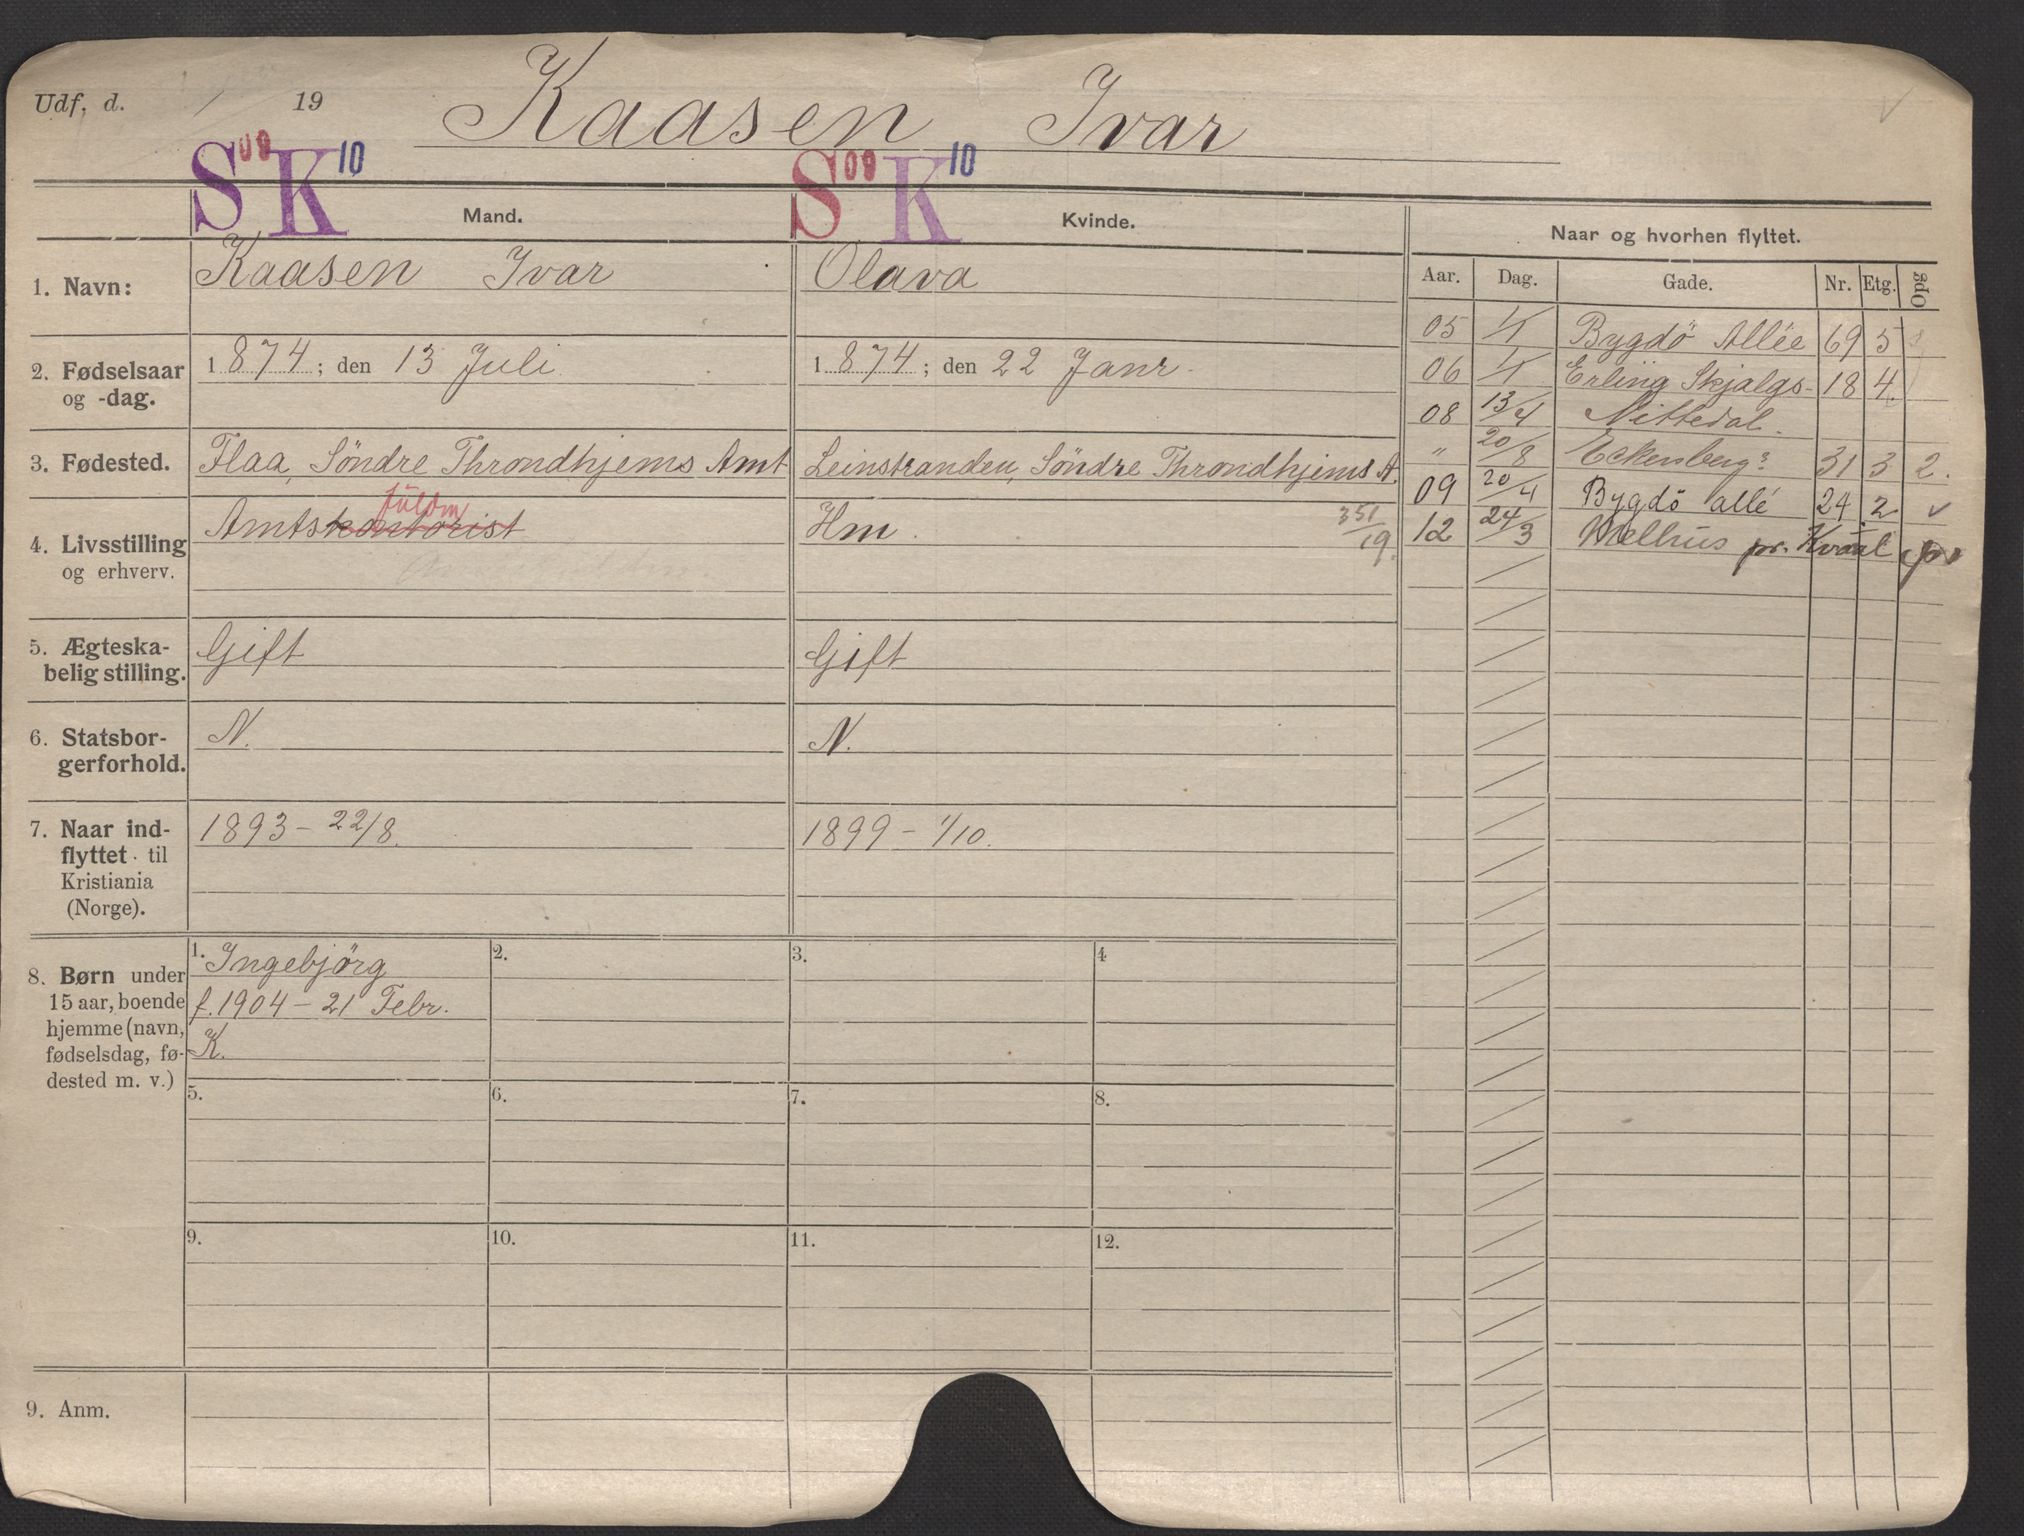 Udf, d. 19
Kaasen Ivar
S 09 K 10
S 09 K 10
Mand.
Kvinde.
Naar og hvorhen flyttet.
Aar. Dag. Gade. Nr. Etg. Opg
1. Navn:
Kaasen Ivar
Olava
2. Fødselsaar
og -dag.
1874; den 13 Juli
1874; den 22 Janr.
3. Fødested.
Flaa, Söndre Throndhjems Amt
Leinstranden, Söndre Throndhjems A.
4. Livsstilling
og erhverv.
fuldm
Amtskontorist
Hm
351/19.
5. Ægteska-
belig stilling.
Gift
Gift
6. Statsbor-
gerforhold.
N.
N.
7. Naar ind-
flyttet til
Kristiania
(Norge).
1893 - 22/8.
1899 - 1/10.
8. Børn under
15 aar, boende
hjemme (navn,
fødselsdag, fø-
dested m. v.)
1. Ingebjörg
f. 1904 - 21 Febr.
K.
2.
3.
4
5.
6.
7.
8.
9.
10.
11.
12.
9. Anm.
05 1/1 Bygdö Allée 69 5
06 1/1 Erling Skjalgs- 18 4.
08 13/4 Nittedal.
" 20/8 Eckersberg 31 3 2.
09 20/4 Bygdö allé 24 2 ✓
12 24/3 Melhus pr. Kvaal